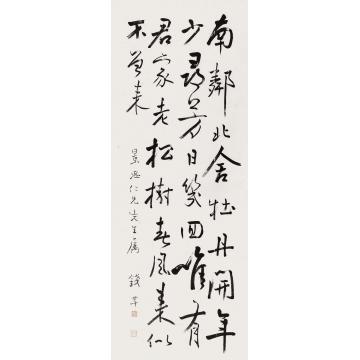 南鄰北舍牡丹開年
少尋芳日幾回唯有
君家老松樹春風來似
不曾來
仁兄先生屬 錢